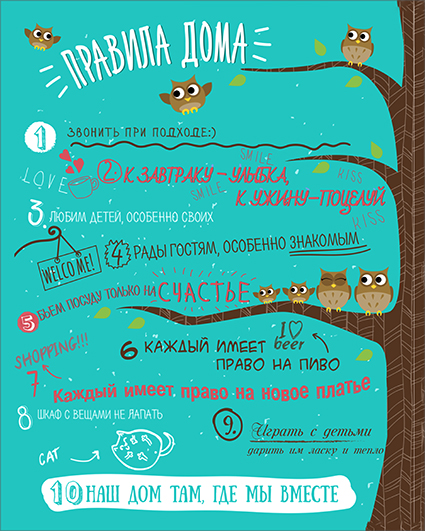 ПРАВИЛА ДОМА
1 ЗВОНИТЬ ПРИ ПОДХОДЕ:)
SMILE
LOVE
2 К ЗАВТРАКУ – УЛЫБКА,
KISS
SMILE
К УЖИНУ – ПОЦЕЛУЙ
KISS
3 ЛЮБИМ ДЕТЕЙ, ОСОБЕННО СВОИХ
WELCOME!
4 РАДЫ ГОСТЯМ, ОСОБЕННО ЗНАКОМЫМ
5 БЬЕМ ПОСУДУ ТОЛЬКО НА СЧАСТЬЕ
I
beer
SHOPPING!!!
6 КАЖДЫЙ ИМЕЕТ
ПРАВО НА ПИВО
7 Каждый имеет право на новое платье
8 ШКАФ С ВЕЩАМИ НЕ ЛАПАТЬ
9. Играть с детьми
дарить им ласку и тепло
CAT
10 НАШ ДОМ ТАМ, ГДЕ МЫ ВМЕСТЕ